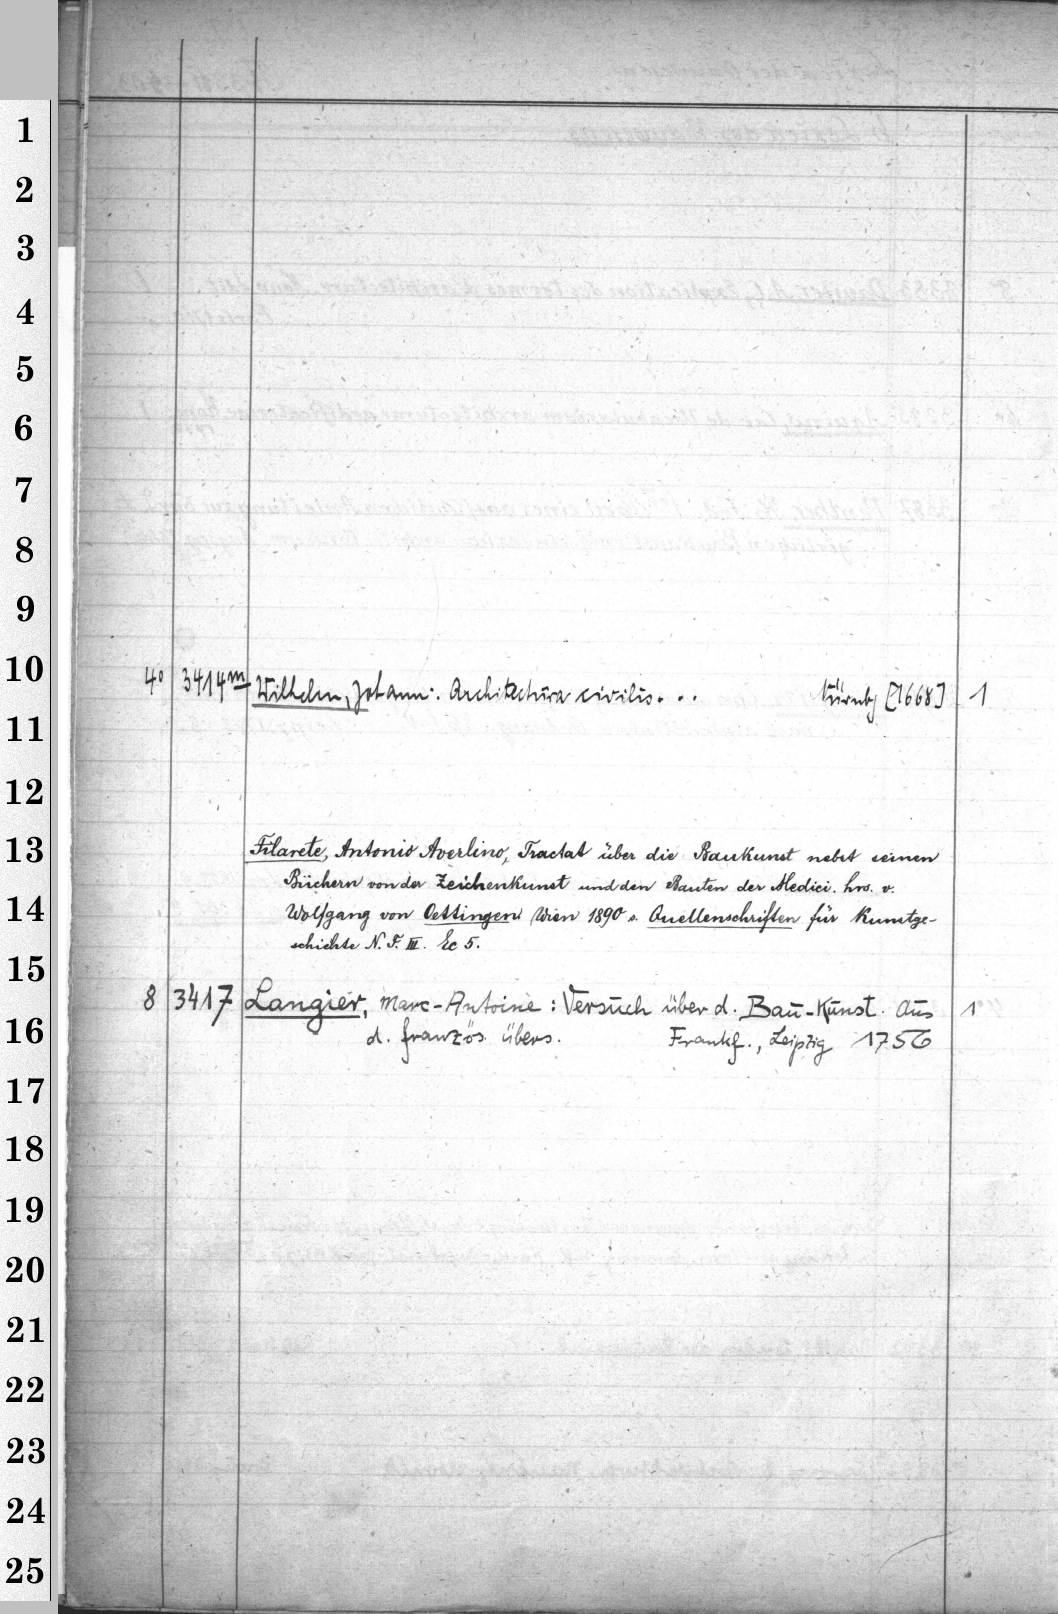 1
2
3
4
5
6
7
8
9
10
11
12
13
14
15
16
17
18
19
20
21
22
23
24
25
4º 3414m Wilhelm, Johann: Architectura civilis... Nürnbg [1668] 1
Filarete, Antonio Averlino, Tractat über die Baukunst nebst seinen
Büchern von der Zeichenkunst und den Bauten der Medici. hrs. v.
Wolfgang von Oettingen Wien 1890 s. Quellenschriften für Kunstge-
schichte N. F. III. Ec 5.
8 3417 Langier, Marc-Antoine: Versuch über d. Bau-Kunst. Aus 1
d. französ übers. Frankf., Leipzig 1756